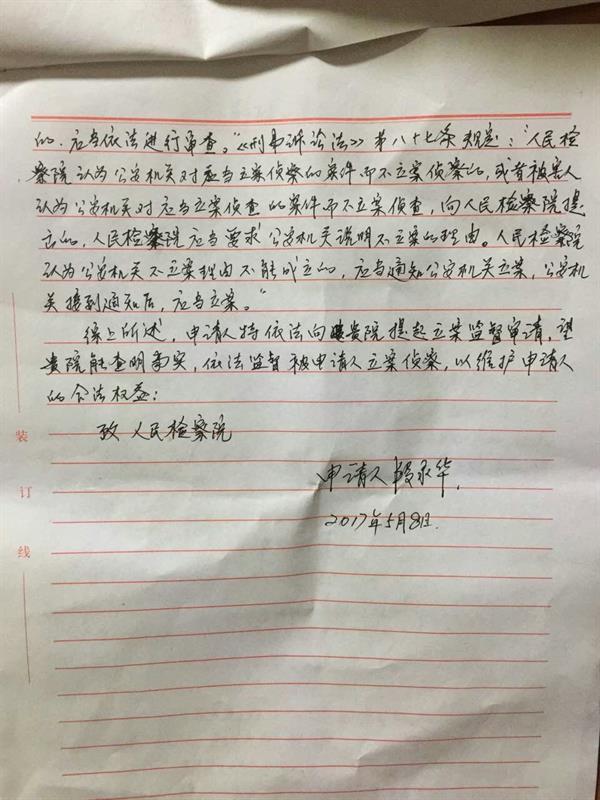 的，应当依法进行审查。《刑事诉讼法》第八十七条规定："人民检
察院认为公安机关对应当立案侦察的案件而不立案侦察的，或者被害人
认为公安机关对应当立案侦查的案件而不立案侦查，向人民检察院提
出的，人民检察院应当要求公安机关说明不立案的理由。人民检察院
认为公安机关不立案理由不能成立的，应当通知公安机关立案，公安机
关接到通知后，应当立案。"
综上所述，申请人特依法向贵院提起立案监督申请，望
贵院能查明事实，依法监督被申请人立案侦察，以维护申请人
的合法权益；
致 人民检察院
申请人 段永华.
2017年5月8日.
装
订
线